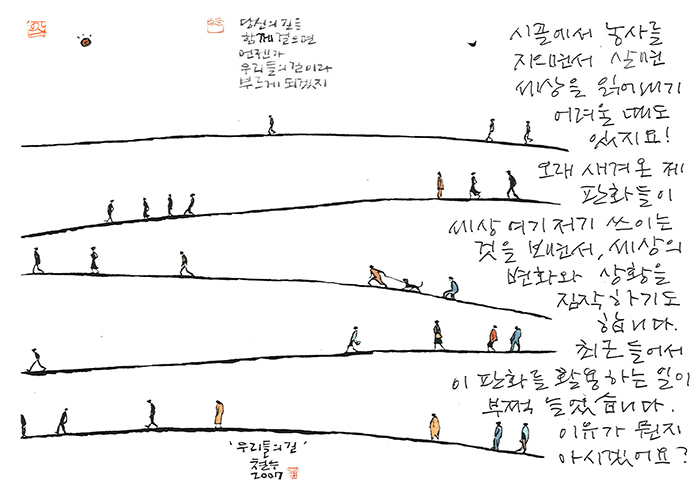 당신의 길을
함께 걸으면
언젠가
우리들의 길이라
부르게 되겠지
시골에서 농사를
지으면서 살면
세상을 읽어내기
어려울 때도
있지요!
오래 새겨온 제
판화들이
세상 여기저기 쓰이는
것을 보면서, 세상의
변화와 상황을
짐작하기도
합니다.
최근 들어서
이 판화를 활용하는 일이
부쩍 늘었습니다.
이유가 뭔지
아시겠어요?
'우리들의 길'
철수
2007